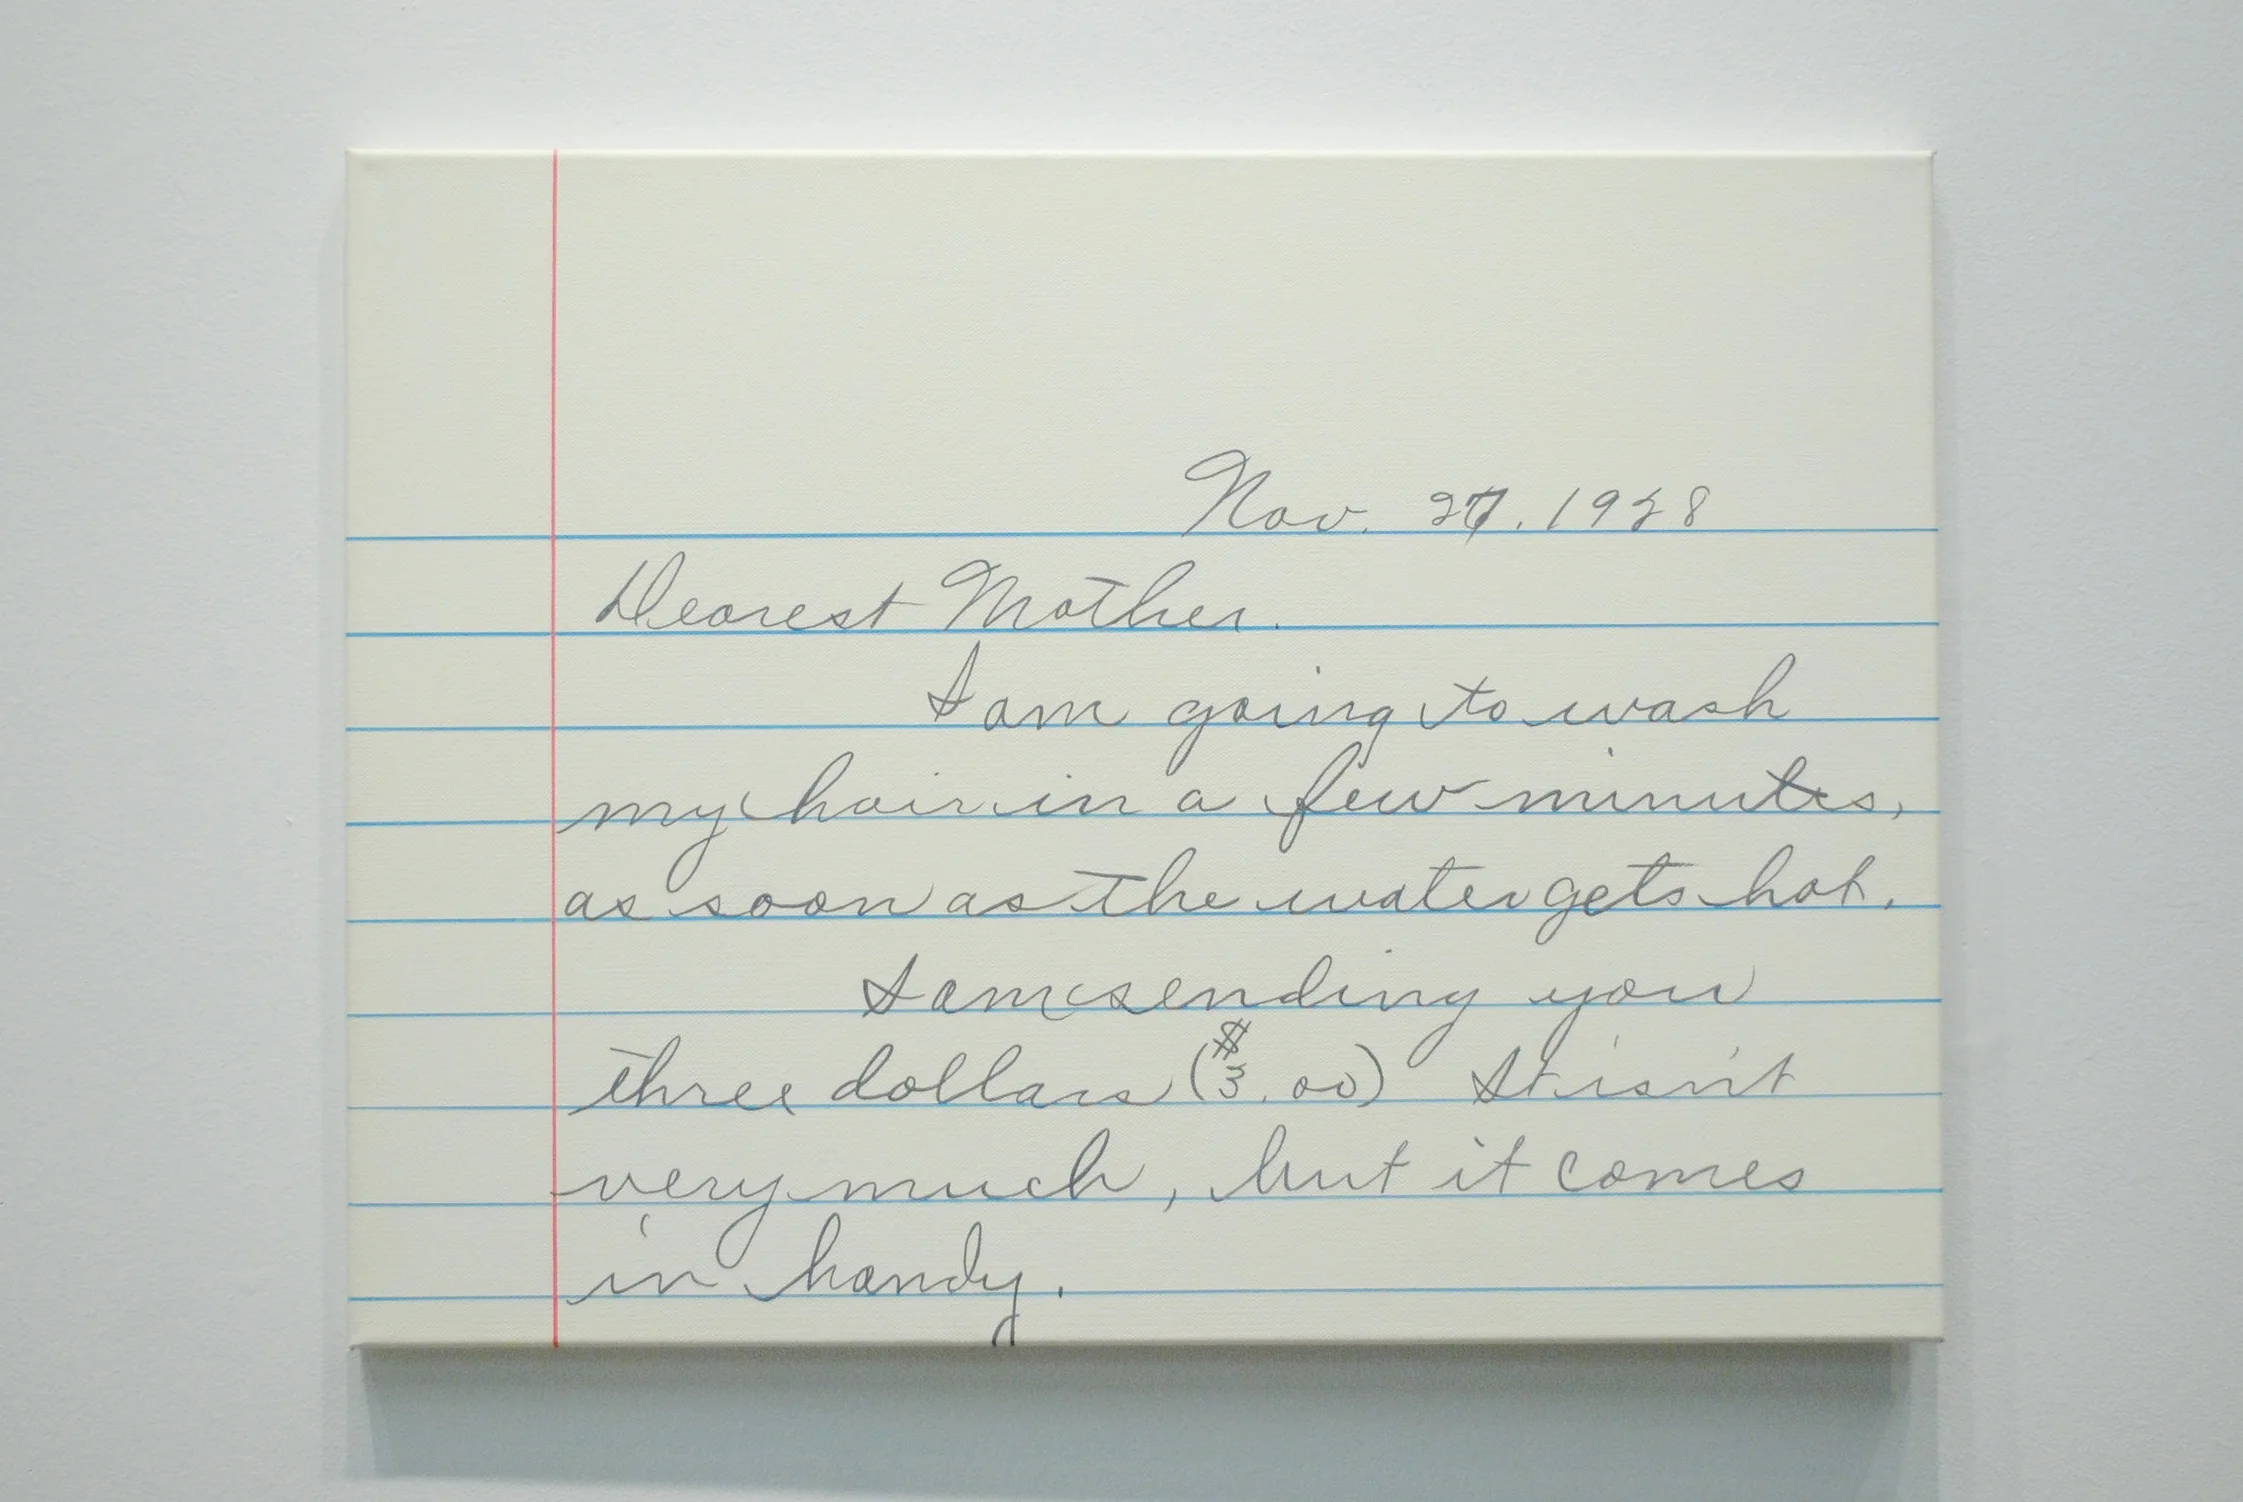 Nov. 27. 1928
Dearest Mother.
I am going to wash
my hair in a few minutes,
as soon as the water gets hot.
I am sending you
three dollars ($3.00) It isn't
very much, but it comes
in handy.